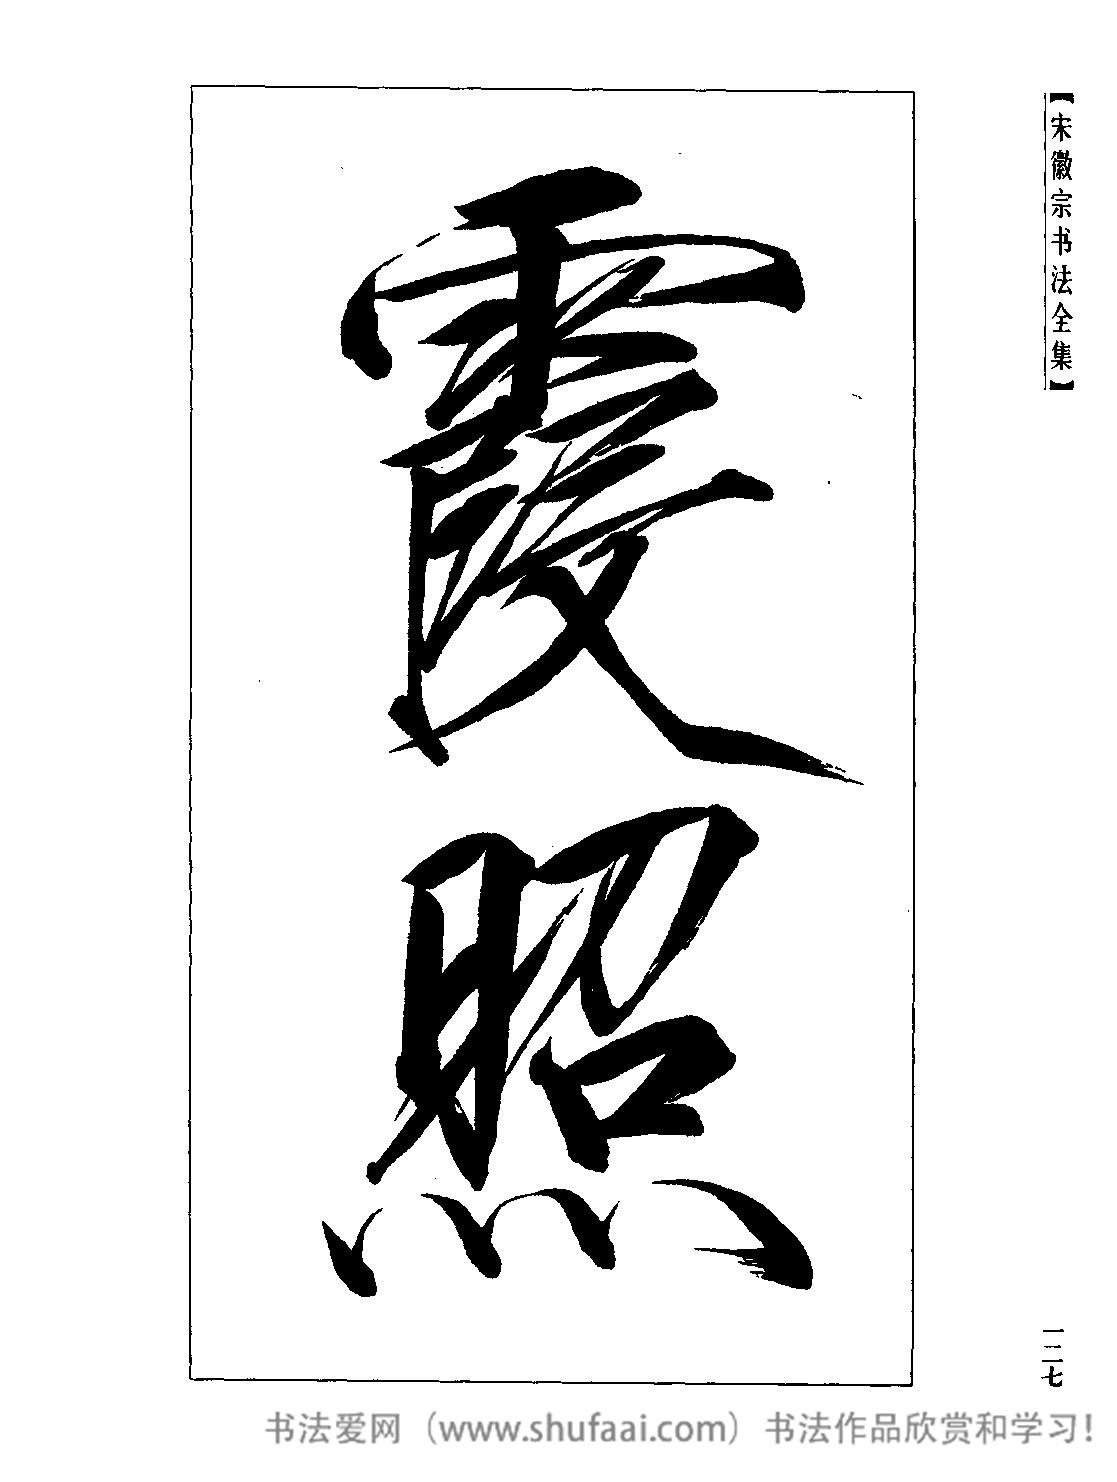 【宋徽宗书法全集】
霞照
一二七
书法爱网（www.shufaai.com）书法作品欣赏和学习！